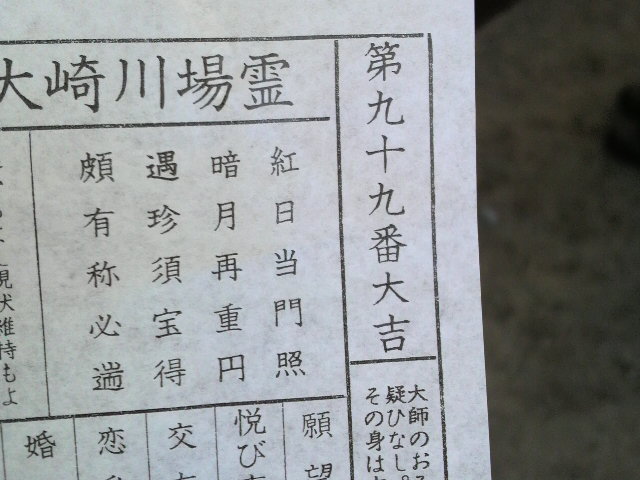 第九十九番大吉
大師のお
疑ひなし。
その身は
大崎川場霊
紅日当門照
暗月再重円
遇珍須宝得
頗有称必遄
願望
悦び
交
恋
婚
現状維持もよ